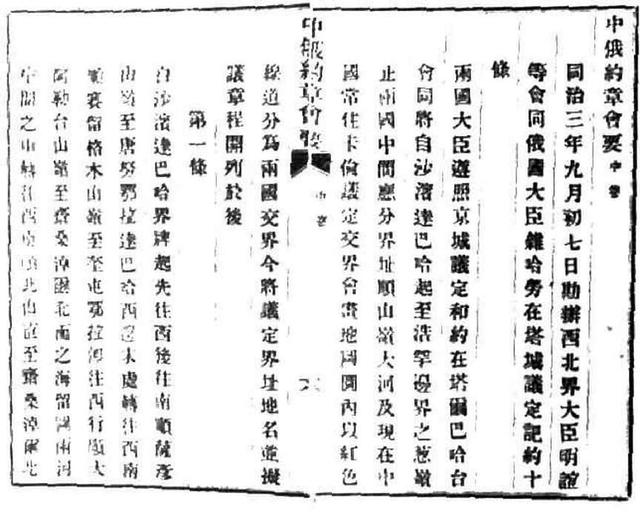 中俄約章會要 中卷
同治三年九月初七日勘辦西北界大臣明誼
等會同俄國大臣雜哈勞在塔城議定記約十
條
兩國大臣遵照京城議定和約在塔爾巴哈台
會同將自沙濱達巴哈起至浩罕邊界之蔥嶺
止兩國中間應分界址順山嶺大河及現在中
國常往卡倫議定交界會畫地圖圖內以紅色
中俄約章會要 中卷
線道分為兩國交界今將議定界址地名並擬
議章程開列於後
第一條
自沙濱達巴哈界牌起先往西後往南順薩彥
山嶺至唐努鄂拉達巴哈西邊末處轉往西南
順賽留格木山嶺至奎屯鄂拉即往西行順大
阿勒台山嶺至齋桑淖爾北面之海留圖兩河
中間之山轉往西南順此山直至齋桑淖爾北